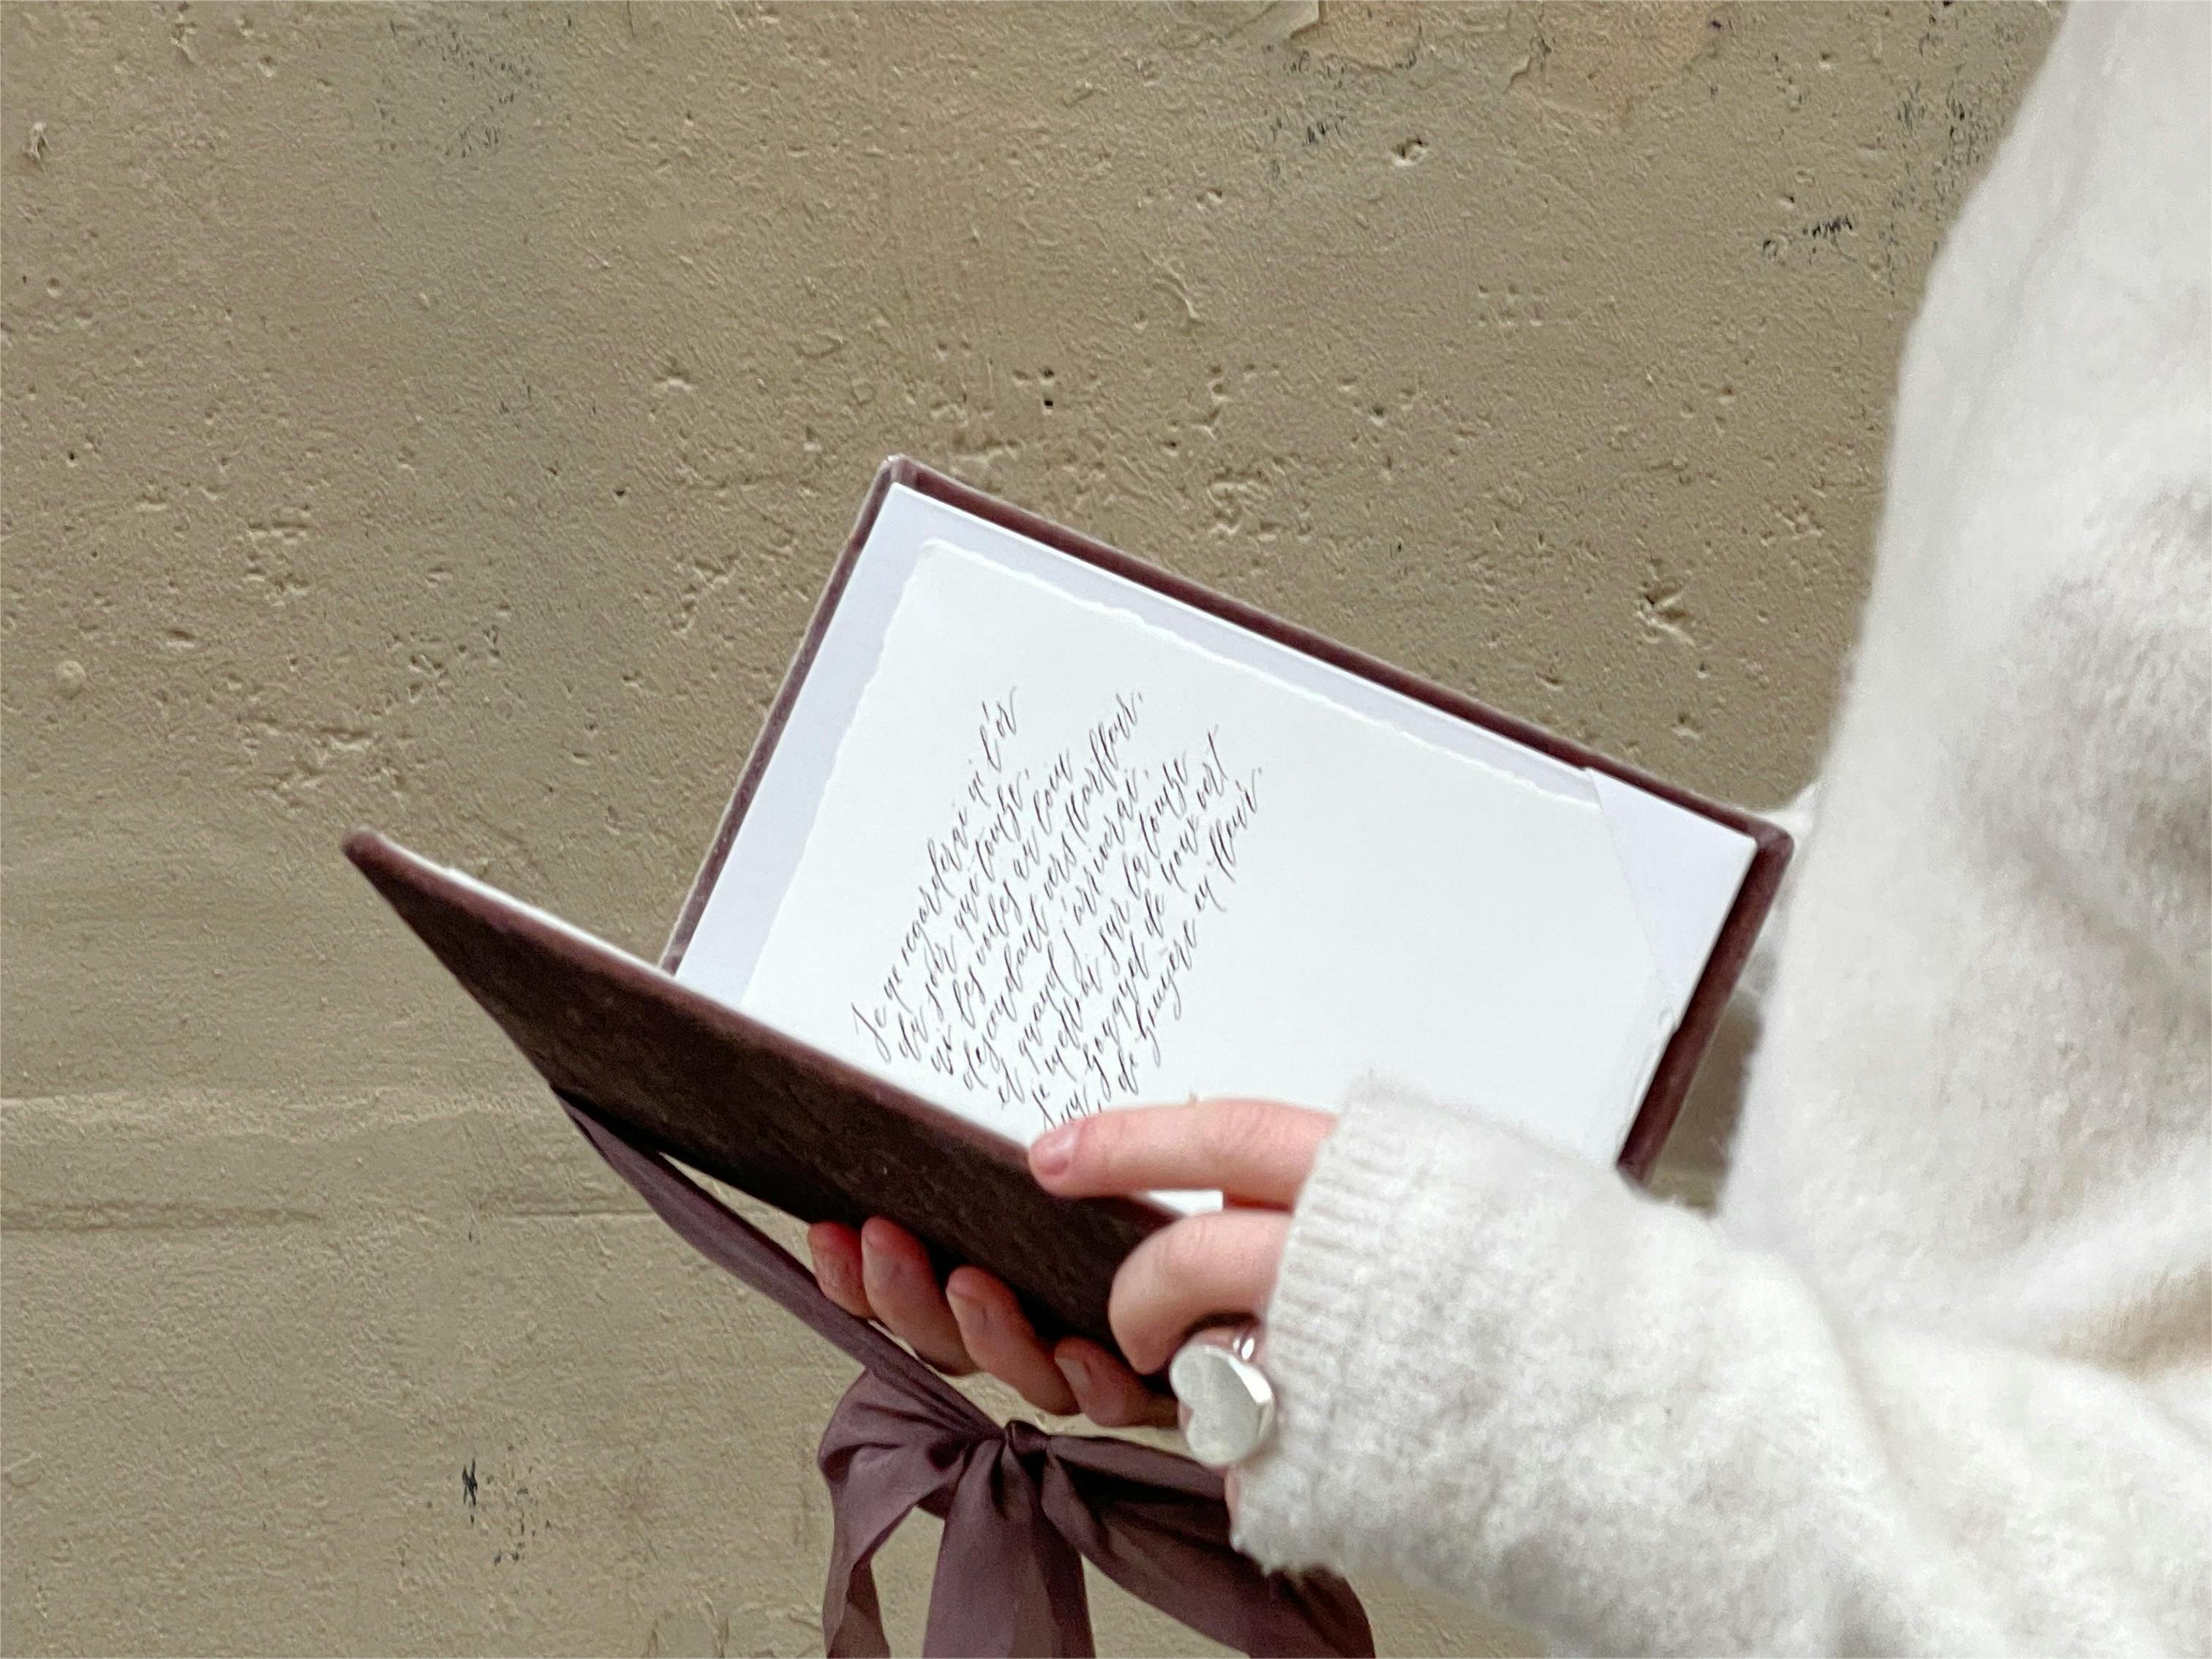 Je ne regarderai ni l'or
du soir qui tombe,
ni les voiles au loin
descendant vers Harfleur,
et quand j'arriverai,
je mettrai sur ta tombe
un bouquet de houx vert
de bruyère en fleur.